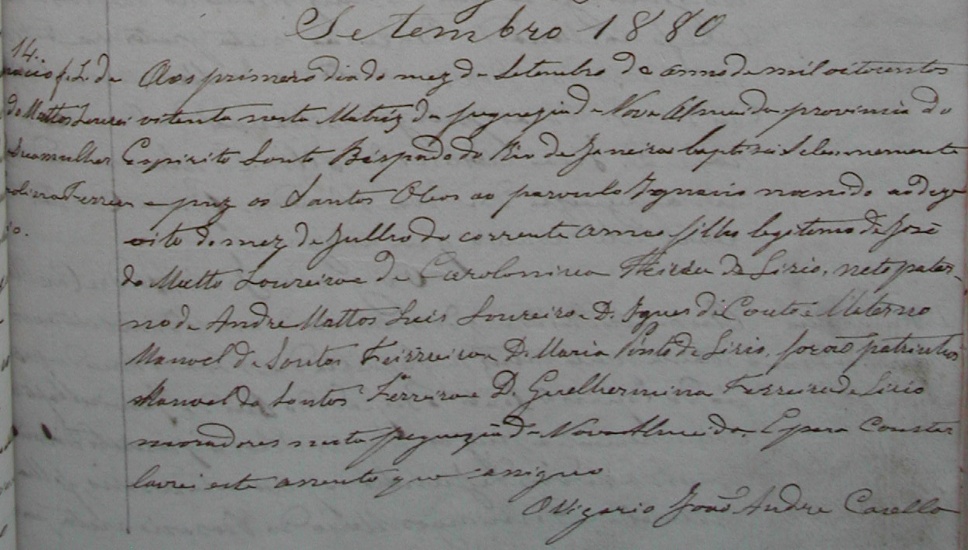 Setembro 1880
14.
nacio f. L. de
de Mattos Lourei
Sua mulher
rolina Ferrei
io.
Aos primero dia do mez de Setembro de anno de mil oitocentos
oitenta nesta Matriz da freguezia de Nova Almeida provincia do
Espirito Santo Bispado do Rio de Janeiro baptizei Solemnemente
e puz os Santos Oleos ao parvulo Ignacio nascido ao deze
oito do mez de Julho do corrente anno filho legitimo de José
de Mattos Loureiro e de Carolonina Ferreira de Lirio, neto pater-
no de Andre Mattos Luis Loureiro e D. Ignes de Couto e Materno
Manoel de Santos Ferreira e D. Maria Pinto de Lirio, forão patrinhos
Manoel de Santos Ferreira e D. Guelhermina Ferreira de Lirio
moradores nesta freguezia de Nova Almeida. E para Constar
lavrei este assento que assigno
O Vigario João Andre Casella